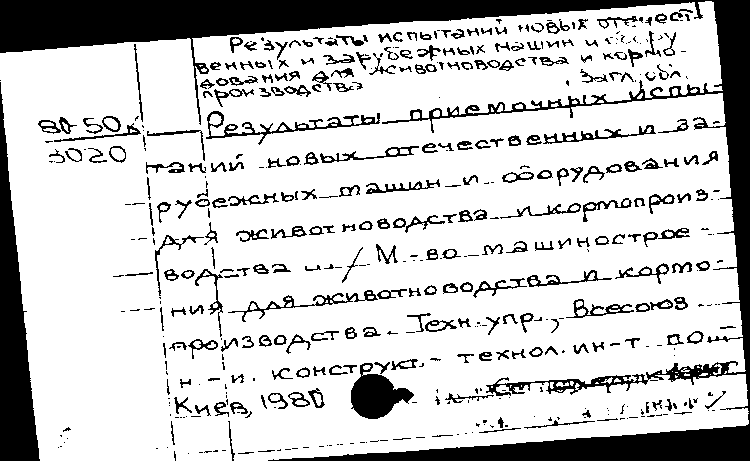 Результаты испытаний новых отечест-
венных и зарубежных машин и обору
дования для животноводства и кормо-
производства
Загл. обл.
80-50к
3020
Результаты приемочных испы-
таний новых отечественных и за-
рубежных машин и оборудования
для животноводства и кормопроиз-
водства ... / М-во машинострое-
ния для животноводства и кормо-
производства. Техн. упр., Всесоюз.
н.-и. конструкт.- технол. ин-т по
Киев, 1980